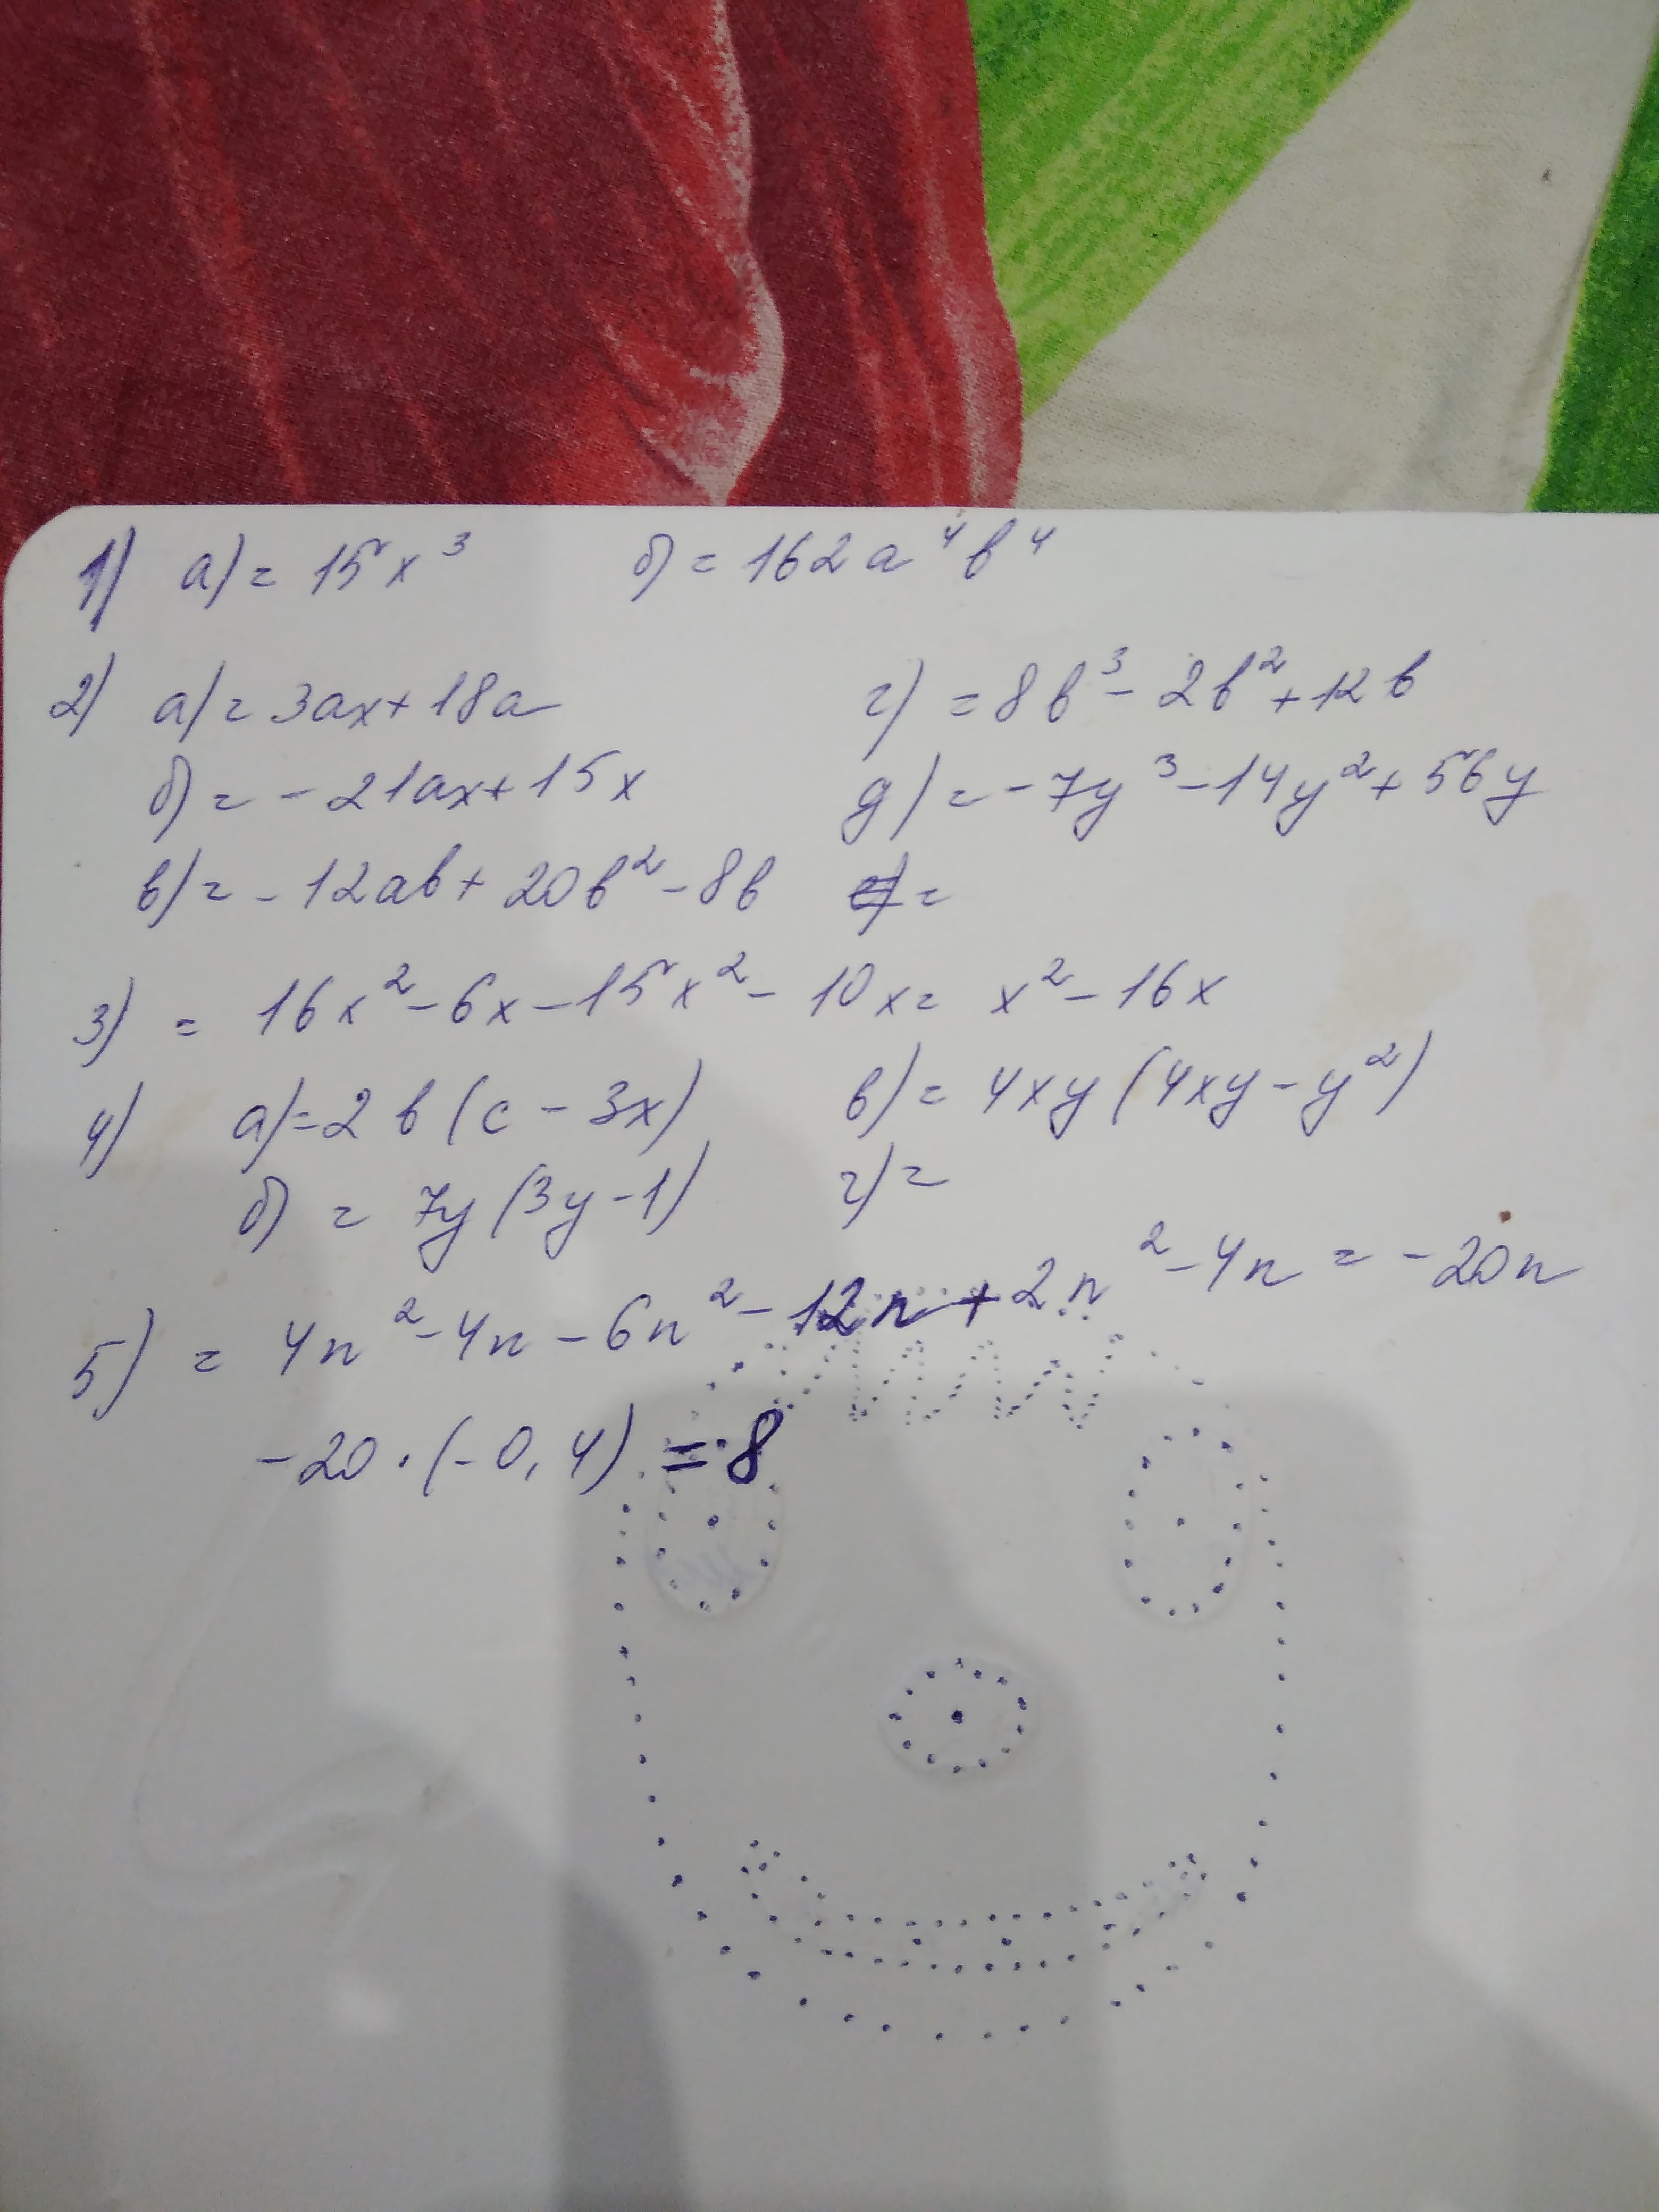 1) а) = 15x³ б) = 162a⁴b⁴
2) а) = 3ax + 18a г) = 8b³ - 2b² + 12b
б) = - 21ax + 15x д) = - 7y³ - 14y² + 56y
в) = - 12ab + 20b² - 8b е) =
3) = 16x² - 6x - 15x² - 10x = x² - 16x
4) а) = 2b(c - 3x) в) = 4xy(4xy - y²)
б) = 7y(3y - 1) г) =
5) = 4n² - 4n - 6n² - 12n + 2n² - 4n = - 20n
- 20 · (- 0,4) = 8